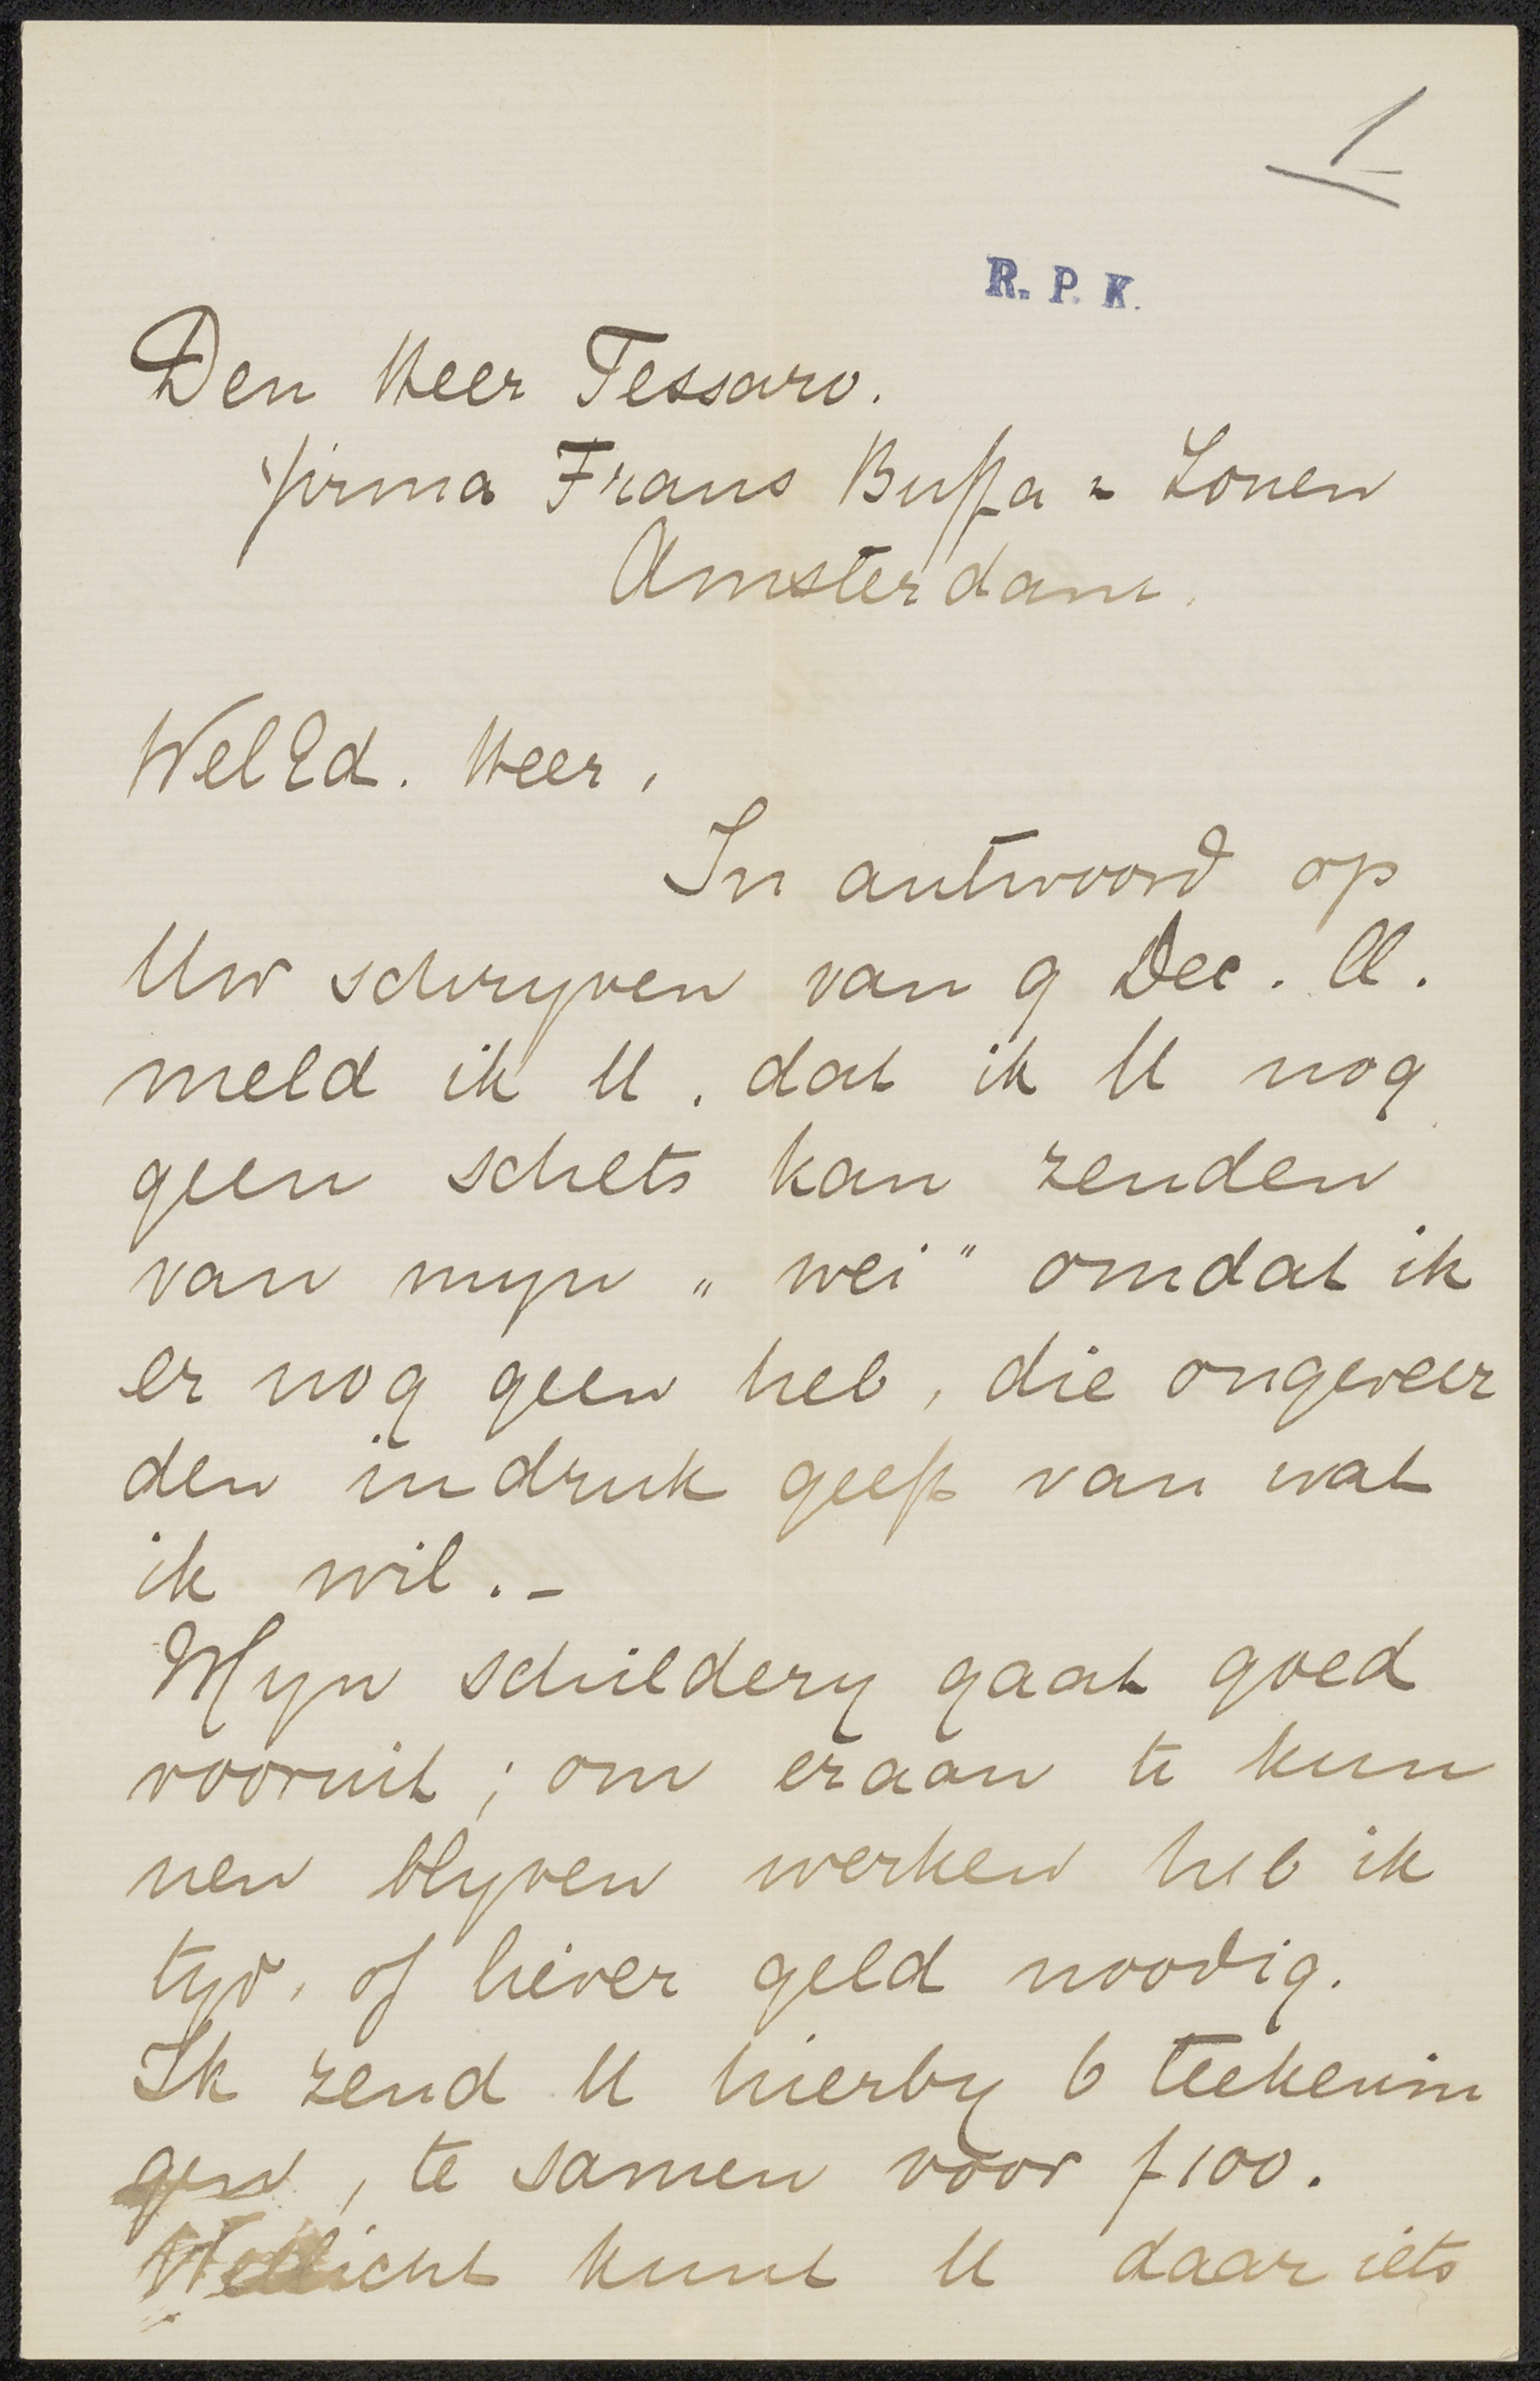 1
R. P. K.
Den Heer Tessaro.
firma Frans Buffa = Zonen
Amsterdam.
WelEd. Heer,
In antwoord op
Uw schryven van 9 Dec. ll.
meld ik U, dat ik U nog
geen schets kan zenden
van myn „ wei " omdat ik
er nog geen heb, die ongeveer
den indruk geeft van wat
ik wil. -
Myn schildery gaat goed
vooruit ; om eraan te kun
nen blyven werken heb ik
tyd, of liever geld noodig.
Ik zend U hierby 6 teekenin
gen, te samen voor f 100.
Wellicht kunt U daar iets